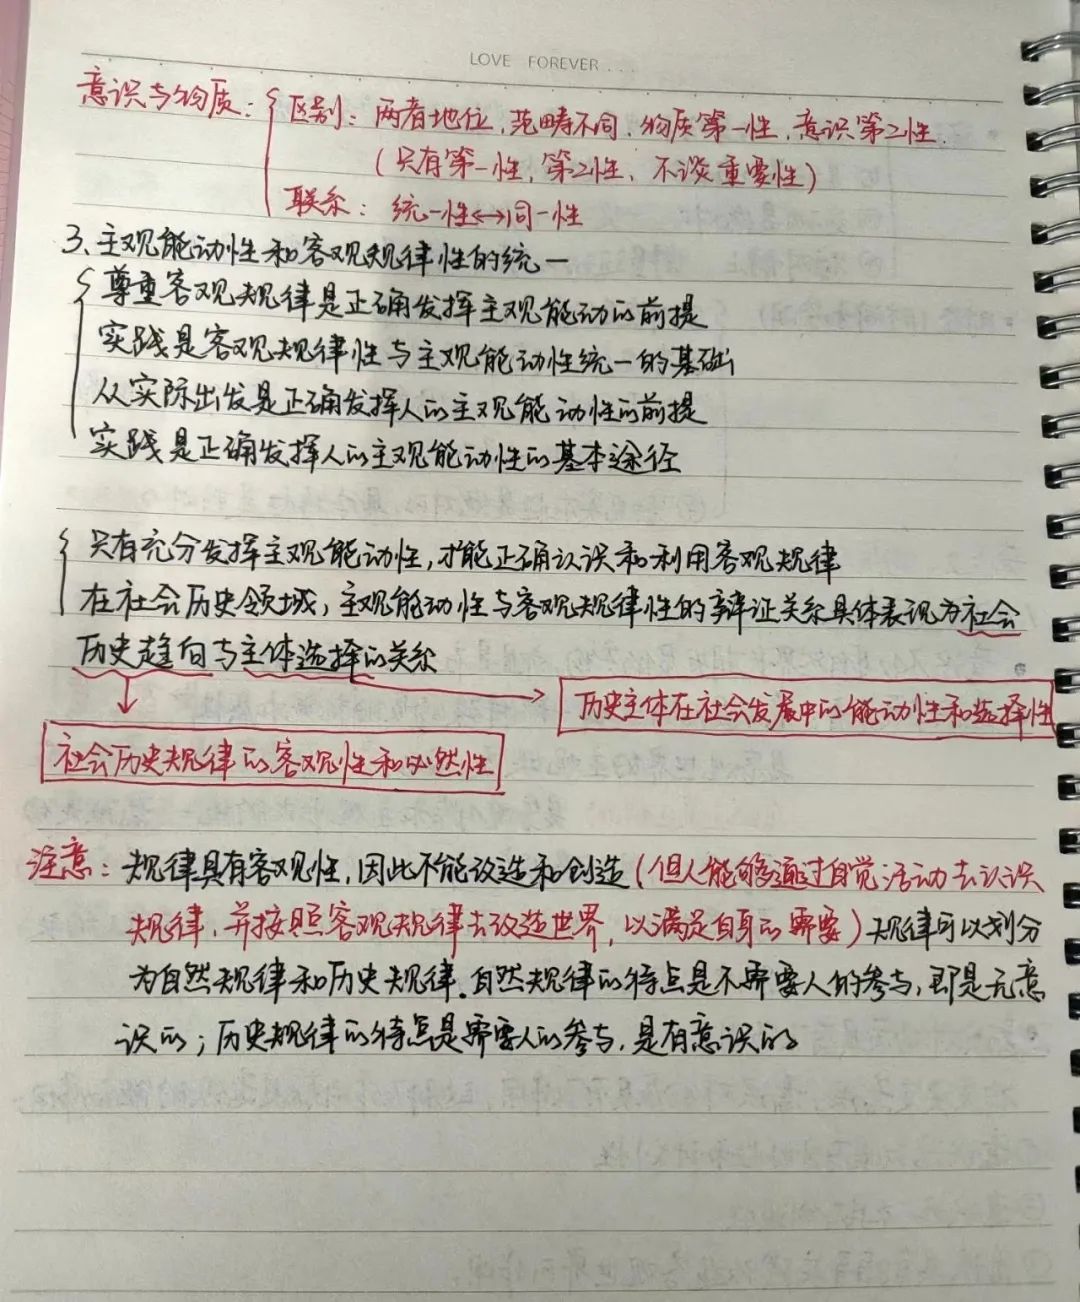 LOVE FOREVER...
意识与物质：区别：两者地位，范畴不同，物质第一性，意识第二性.
（只有第一性，第二性，不谈重要性）
联系：统一性↔同一性
3、主观能动性和客观规律性的统一
尊重客观规律是正确发挥主观能动的前提
实践是客观规律性与主观能动性统一的基础
从实际出发是正确发挥人的主观能动性的前提
实践是正确发挥人的主观能动性的基本途径
只有充分发挥主观能动性，才能正确认识和利用客观规律
在社会历史领域，主观能动性与客观规律性的辩证关系具体表现为社会
历史趋向与主体选择的关系
历史主体在社会发展中的能动性和选择性
社会历史规律的客观性和必然性
注意：规律具有客观性，因此不能改造和创造（但人能够通过自觉活动去认识
规律，并按照客观规律去改造世界，以满足自身的需要）规律可以划分
为自然规律和历史规律.自然规律的特点是不需要人的参与，即是无意
识的；历史规律的特点是需要人的参与，是有意识的